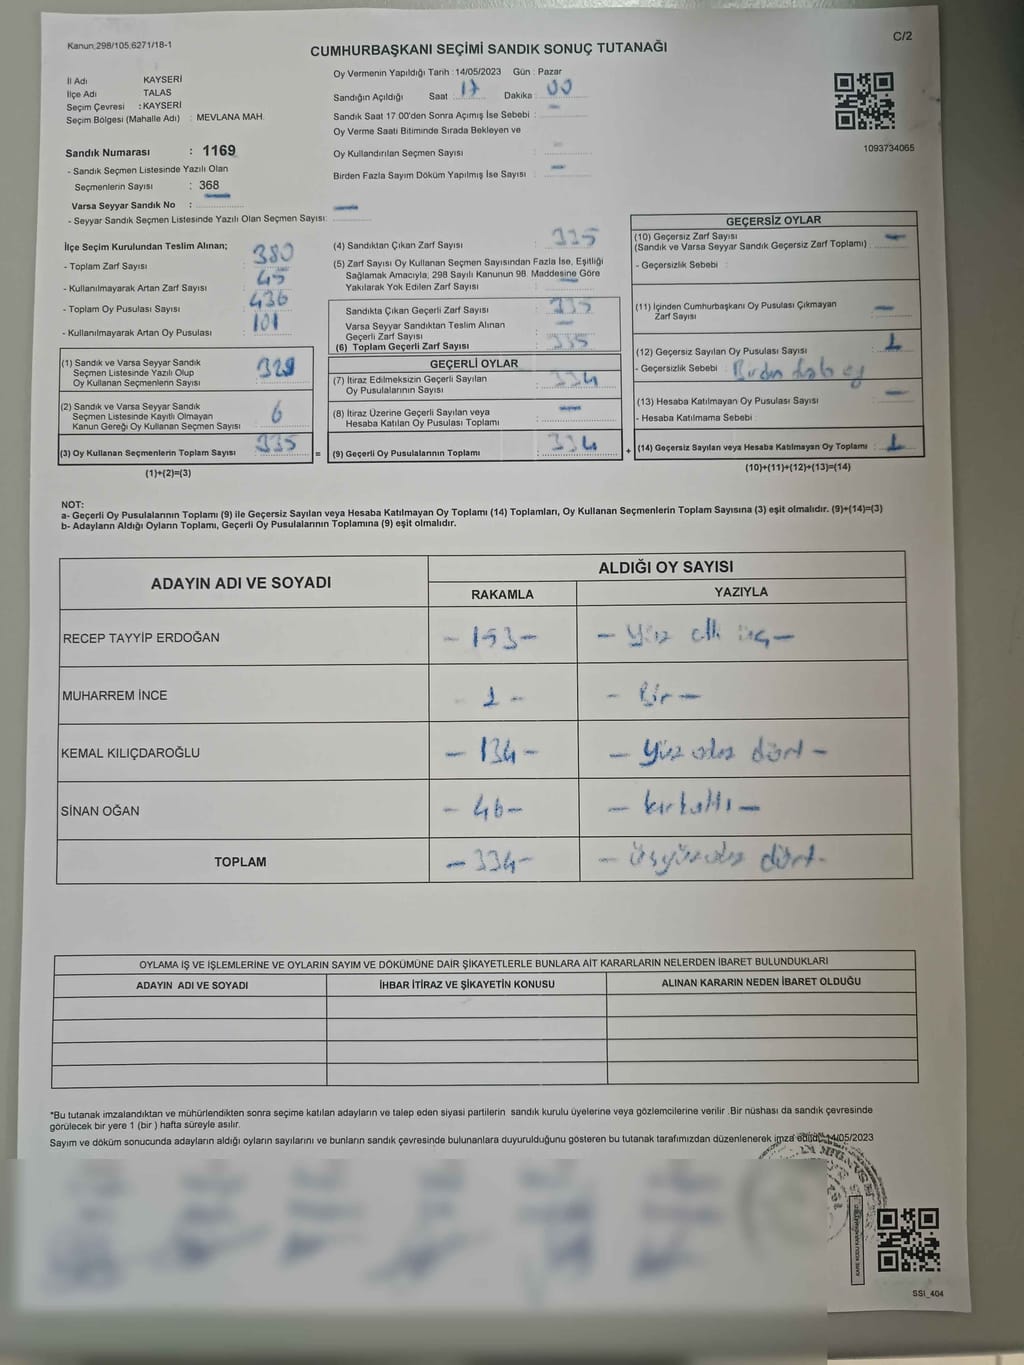 Kanun:298/105,6271/18-1
C/2
CUMHURBAŞKANI SEÇİMİ SANDIK SONUÇ TUTANAĞI
İl Adı KAYSERİ
İlçe Adı TALAS
Seçim Çevresi : KAYSERİ
Seçim Bölgesi (Mahalle Adı) : MEVLANA MAH.
Sandık Numarası : 1169
- Sandık Seçmen Listesinde Yazılı Olan
Seçmenlerin Sayısı : 368
Varsa Seyyar Sandık No : —
- Seyyar Sandık Seçmen Listesinde Yazılı Olan Seçmen Sayısı: —
Oy Vermenin Yapıldığı Tarih :14/05/2023 Gün : Pazar
Sandığın Açıldığı Saat : 17 Dakika : 00
Sandık Saat 17:00'den Sonra Açımış İse Sebebi : —
Oy Verme Saati Bitiminde Sırada Bekleyen ve
Oy Kullandırılan Seçmen Sayısı : —
Birden Fazla Sayım Döküm Yapılmış İse Sayısı : —
1093734065
İlçe Seçim Kurulundan Teslim Alınan;
- Toplam Zarf Sayısı : 380
- Kullanılmayarak Artan Zarf Sayısı : 45
- Toplam Oy Pusulası Sayısı : 436
- Kullanılmayarak Artan Oy Pusulası : 101
(1) Sandık ve Varsa Seyyar Sandık
Seçmen Listesinde Yazılı Olup
Oy Kullanan Seçmenlerin Sayısı : 329
(2) Sandık ve Varsa Seyyar Sandık
Seçmen Listesinde Kayıtlı Olmayan
Kanun Gereği Oy Kullanan Seçmen Sayısı : 6
(3) Oy Kullanan Seçmenlerin Toplam Sayısı : 335
(1)+(2)=(3)
(4) Sandıktan Çıkan Zarf Sayısı : 335
(5) Zarf Sayısı Oy Kullanan Seçmen Sayısından Fazla İse, Eşitliği
Sağlamak Amacıyla; 298 Sayılı Kanunun 98. Maddesine Göre
Yakılarak Yok Edilen Zarf Sayısı : —
Sandıkta Çıkan Geçerli Zarf Sayısı : 335
Varsa Seyyar Sandıktan Teslim Alınan
Geçerli Zarf Sayısı : —
(6) Toplam Geçerli Zarf Sayısı : 335
GEÇERLİ OYLAR
(7) İtiraz Edilmeksizin Geçerli Sayılan
Oy Pusulalarının Sayısı : 334
(8) İtiraz Üzerine Geçerli Sayılan veya
Hesaba Katılan Oy Pusulası Toplamı : —
= (9) Geçerli Oy Pusulalarının Toplamı : 334
GEÇERSİZ OYLAR
(10) Geçersiz Zarf Sayısı
(Sandık ve Varsa Seyyar Sandık Geçersiz Zarf Toplamı) : —
- Geçersizlik Sebebi :
(11) İçinden Cumhurbaşkanı Oy Pusulası Çıkmayan
Zarf Sayısı : —
(12) Geçersiz Sayılan Oy Pusulası Sayısı : 1
- Geçersizlik Sebebi : Birden fazla oy
(13) Hesaba Katılmayan Oy Pusulası Sayısı : —
- Hesaba Katılmama Sebebi :
+ (14) Geçersiz Sayılan veya Hesaba Katılmayan Oy Toplamı : 1
(10)+(11)+(12)+(13)=(14)
NOT:
a- Geçerli Oy Pusulalarının Toplamı (9) ile Geçersiz Sayılan veya Hesaba Katılmayan Oy Toplamı (14) Toplamları, Oy Kullanan Seçmenlerin Toplam Sayısına (3) eşit olmalıdır. (9)+(14)=(3)
b- Adayların Aldığı Oyların Toplamı, Geçerli Oy Pusulalarının Toplamına (9) eşit olmalıdır.
ADAYIN ADI VE SOYADI
ALDIĞI OY SAYISI
RAKAMLA YAZIYLA
RECEP TAYYİP ERDOĞAN - 153 - - Yüz elli üç -
MUHARREM İNCE - 1 - - Bir -
KEMAL KILIÇDAROĞLU - 134 - - Yüz otuz dört -
SİNAN OĞAN - 46 - - kırkaltı -
TOPLAM - 334 - - Üçyüzotuz dört -
OYLAMA İŞ VE İŞLEMLERİNE VE OYLARIN SAYIM VE DÖKÜMÜNE DAİR ŞİKAYETLERLE BUNLARA AİT KARARLARIN NELERDEN İBARET BULUNDUKLARI
ADAYIN ADI VE SOYADI İHBAR İTİRAZ VE ŞİKAYETİN KONUSU ALINAN KARARIN NEDEN İBARET OLDUĞU
*Bu tutanak imzalandıktan ve mühürlendikten sonra seçime katılan adayların ve talep eden siyasi partilerin sandık kurulu üyelerine veya gözlemcilerine verilir .Bir nüshası da sandık çevresinde
görülecek bir yere 1 (bir ) hafta süreyle asılır.
Sayım ve döküm sonucunda adayların aldığı oyların sayılarını ve bunların sandık çevresinde bulunanlara duyurulduğunu gösteren bu tutanak tarafımızdan düzenlenerek imza edildi. 14/05/2023
SSI_404